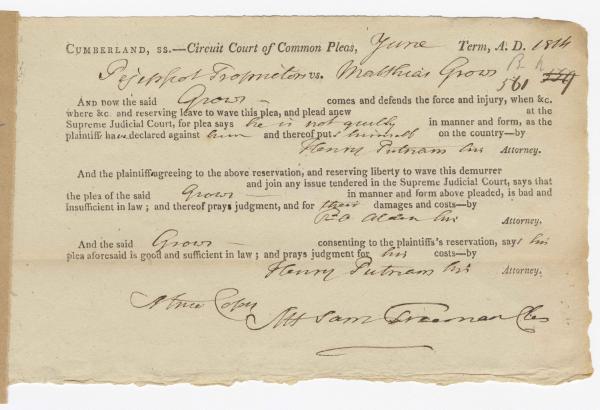 CUMBERLAND, SS.—Circuit Court of Common Pleas, June Term, A. D. 1814
Pejepscot Proprietors vs. Matthias Grows
561
AND now the said Grows — comes and defends the force and injury, when &c.
where &c. and reserving leave to wave this plea, and plead anew at the
Supreme Judicial Court, for plea says he is not guilty in manner and form, as the
plaintiff have declared against him and thereof puts himself on the country—by
Henry Putnam his Attorney.
And the plaintiffs agreeing to the above reservation, and reserving liberty to wave this demurrer
and join any issue tendered in the Supreme Judicial Court, says that
the plea of the said Grows — in manner and form above pleaded, is bad and
insufficient in law; and thereof prays judgment, and for their damages and costs—by
Alden his Attorney.
And the said Grows — consenting to the plaintiffs's reservation, says his
plea aforesaid is good and sufficient in law; and prays judgment for his costs—by
Henry Putnam his Attorney.
A true Copy
Att Sam Freeman Cler